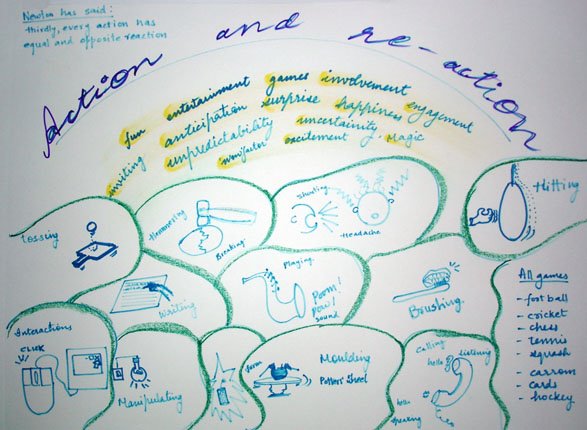 Newton has said:
thirdly, every action has
equal and opposite reaction
Action and re-action
fun entertainment games involvement
inviting anticipation surprise happiness engagement
unpredictability uncertainity
excitement. Magic
Tossing
Hammering
Breaking.
Shunting
Headache
Hitting
Writing
Playing.
Poom!
Pow!
sound
Brushing.
Interactions
CLICK
Manipulating
form
Moulding
Potters' Wheel
Calling
hello
listening
hello
speaking
All games
- foot ball
- cricket
- chess
- tennis
- squash
- carrom
- cards
- hockey